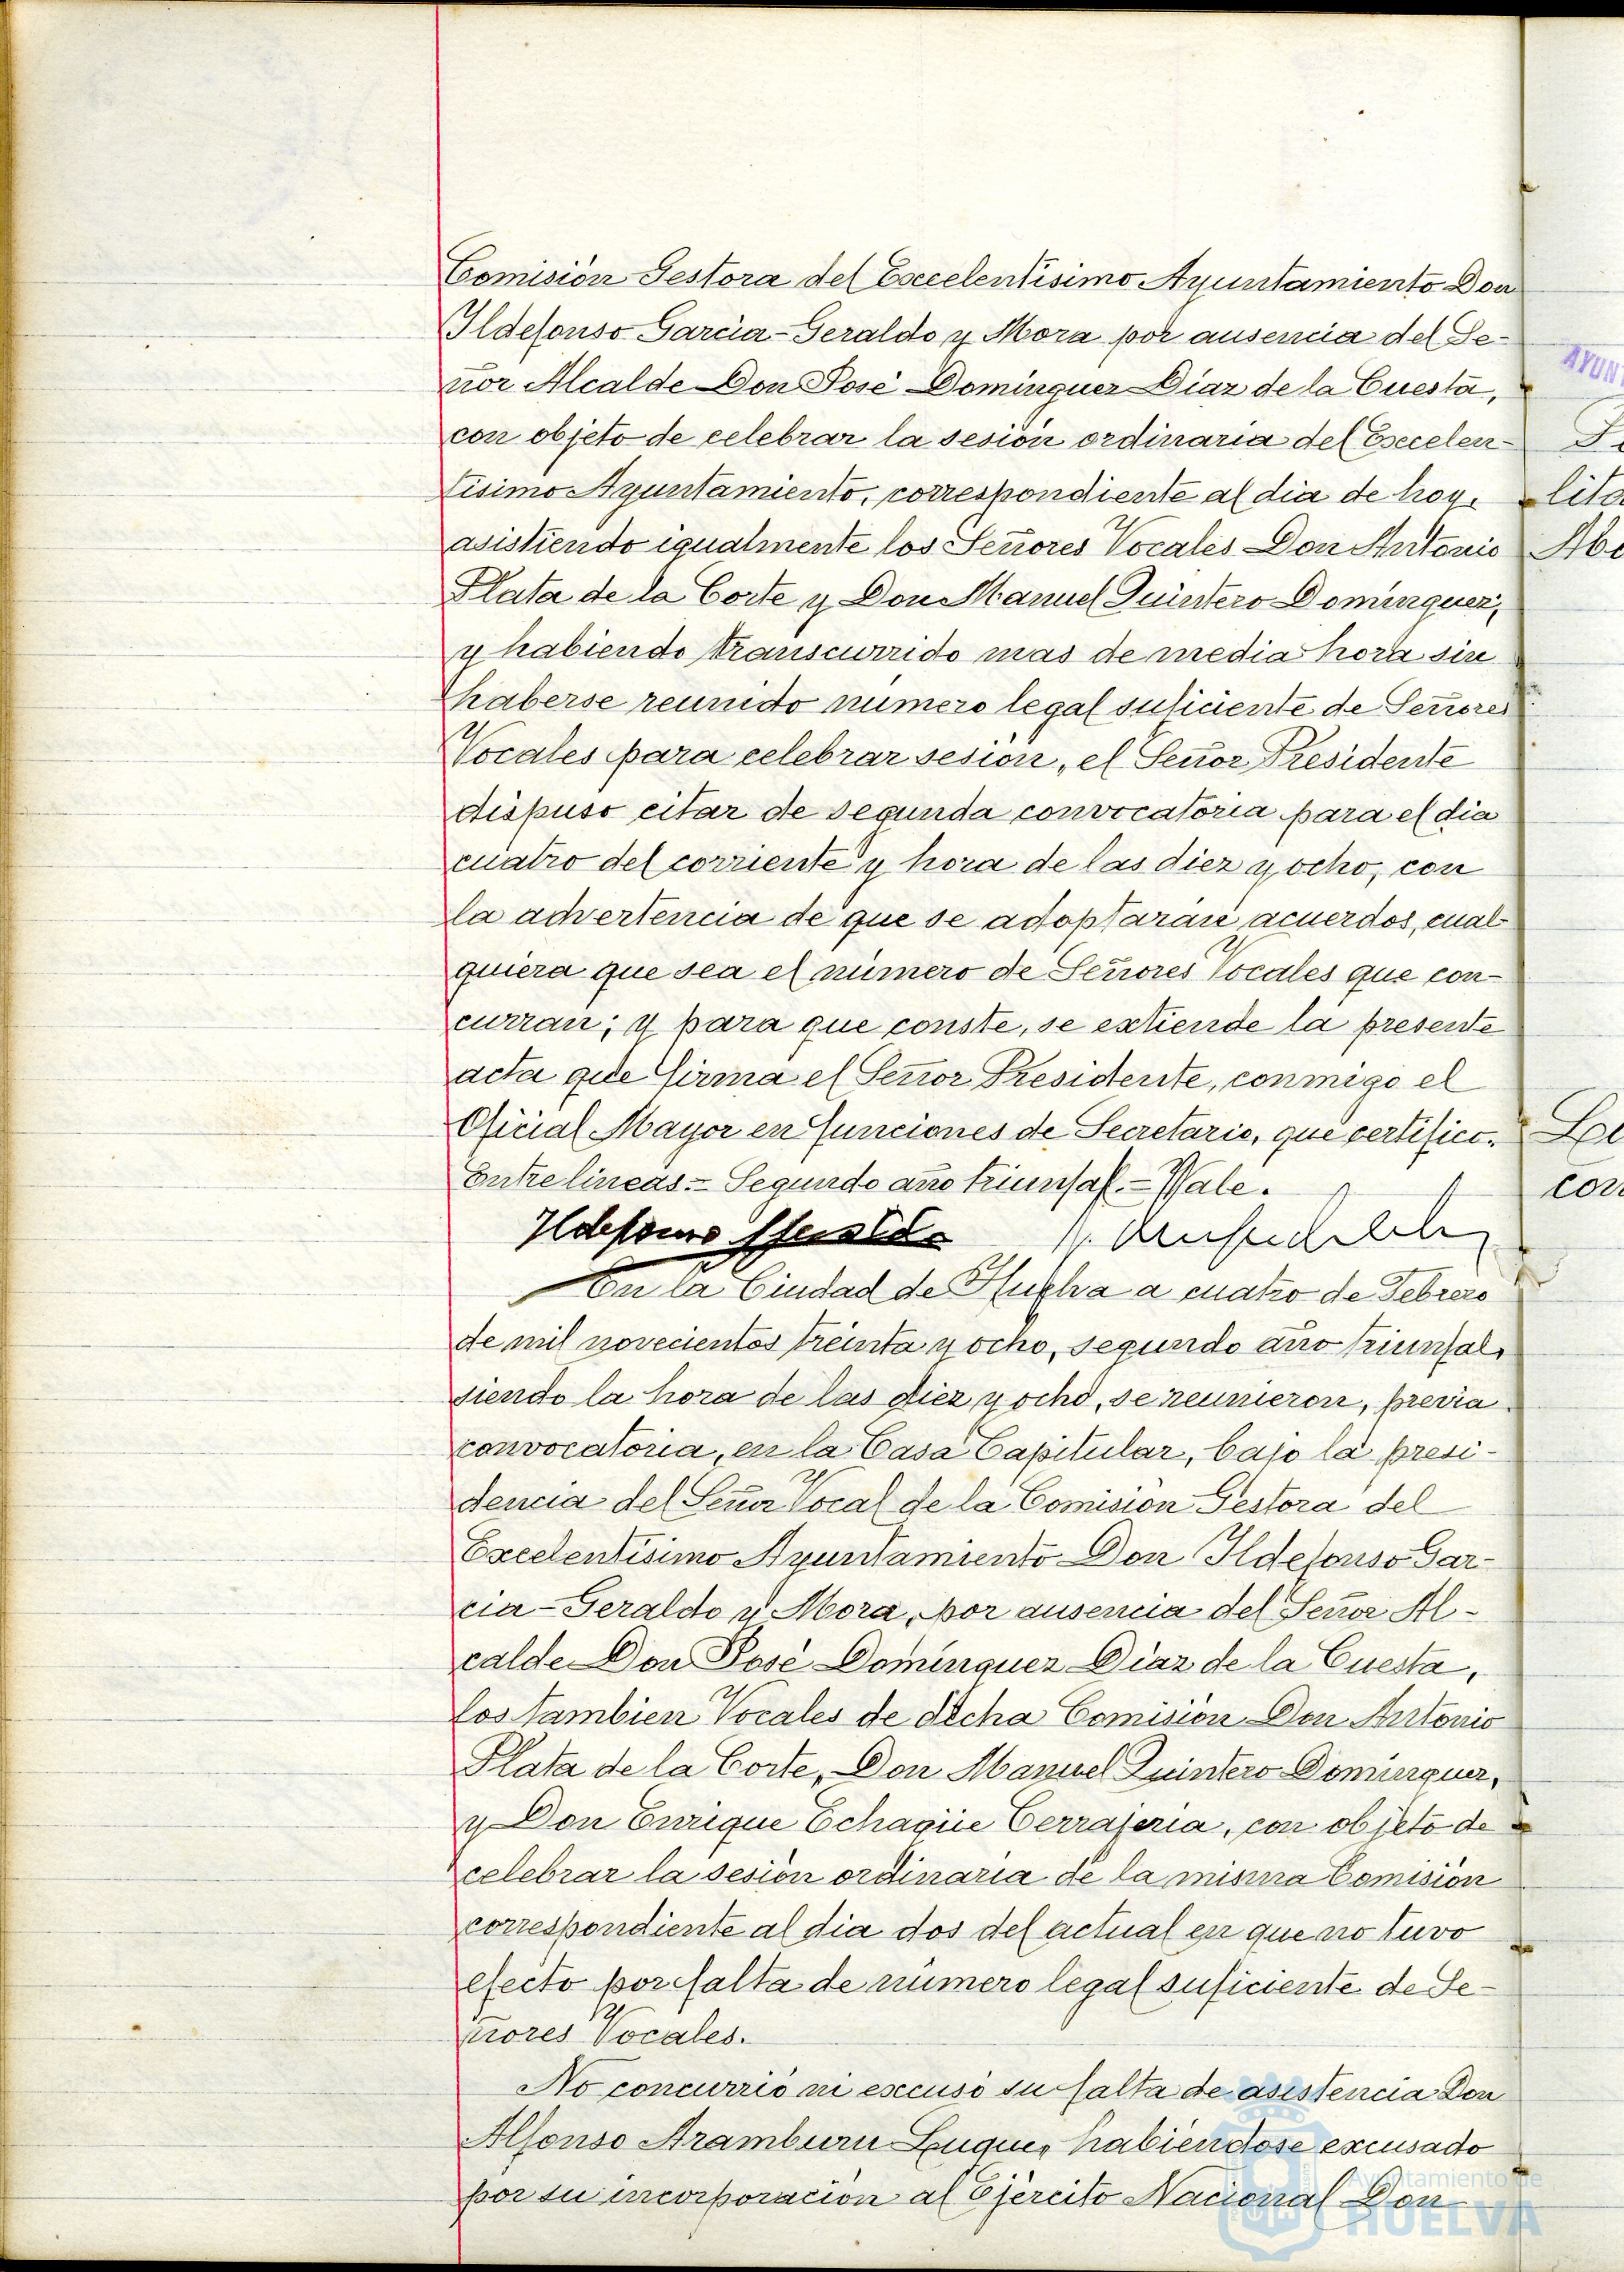 Comisión Gestora del Excelentísimo Ayuntamiento Don
Ildefonso García-Geraldo y Mora por ausencia del Se-
ñor Alcalde Don José Dominguez Díaz de la Cuesta,
con objeto de celebrar la sesión ordinaria del Excelen-
tísimo Ayuntamiento, correspondiente al dia de hoy,
asistiendo igualmente los Señores Vocales Don Antonio
Plata de la Corte y Don Manuel Quintero Domínguez,
y habiendo transcurrido mas de media hora sin
haberse reunido número legal suficiente de Señores
Vocales para celebrar sesión, el Señor Presidente
dispuso citar de segunda convocatoria para el dia
cuatro del corriente y hora de las diez y ocho, con
la advertencia de que se adoptarán acuerdos, cual-
quiera que sea el número de Señores Vocales que con-
curran; y para que conste, se extiende la presente
acta que firma el Señor Presidente, conmigo el
Oficial Mayor en funciones de Secretario, que certifico.
Entre lineas = Segundo año triunfal. = Vale.
Ildefonso
En la Ciudad de Huelva a cuatro de Febrero
de mil novecientos treinta y ocho, segundo año triunfal,
siendo la hora de las diez y ocho, se reunieron, previa
convocatoria, en la Casa Capitular, bajo la presi-
dencia del Señor Vocal de la Comisión Gestora del
Excelentísimo Ayuntamiento Don Ildefonso Gar-
cia-Geraldo y Mora, por ausencia del Señor Al-
calde Don José Domínguez Díaz de la Cuesta,
los tambien Vocales de dicha Comisión Don Antonio
Plata de la Corte, Don Manuel Quintero Domínguez,
y Don Enrique Echagüe Cerrajería, con objeto de
celebrar la sesión ordinaria de la misma Comisión
correspondiente al dia dos del actual en que no tuvo
efecto por falta de número legal suficiente de Se-
ñores Vocales.
No concurrió ni excusó su falta de asistencia Don
Alfonso Aramburu Luque, habiendose excusado
por su incorporación al Ejército Nacional Don
Ayuntamiento de
HUELVA